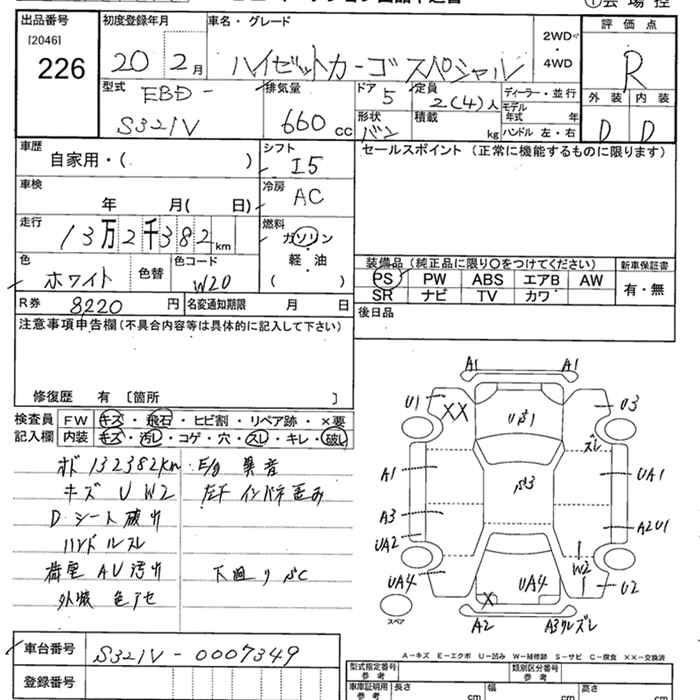 ① 会場控
出品番号
[2046]
226
初度登録年月
20年2月
車名・グレード
ハイゼットカーゴ スペシャル
2WD
4WD
評価点
R
外装 内装
D D
型式
EBD-
S321V
排気量
660cc
ドア
5
形状
バン
定員
2(4)人
積載
kg
ディーラー・並行
モデル年式 年
ハンドル 左・右
車歴
自家用・( )
シフト
I5
セールスポイント(正常に機能するものに限ります)
車検
年 月( 日)
冷房
AC
走行
13万2千382km
燃料
ガソリン
軽・油
( )
色
ホワイト
色替
色コード
W20
装備品(純正品に限り○をつけてください)
PS PW ABS エアB AW
SR ナビ TV カワ
新車保証書
有・無
R券
8220円
名変通知期限 月 日
後日品
注意事項申告欄(不具合内容等は具体的に記入して下さい)
修復歴 有 [箇所 ]
検査員
記入欄
FW キズ・飛石・ヒビ割・リペア跡・×要
内装 キズ・汚レ・コゲ・穴・スレ・キレ・破レ
オド 132382km
キズ U W2
Dシート破れ
ハンドルスレ
荷室 AU 汚れ
外装 色アセ
E/g 異音
左F インパネ歪み
下廻り サビ
A1 A1
U1 XX U3
ズレ
A1 UA1
A3 A2U1
UA2 W2
UA4 UA4 U2
X
A2 A3クルズレ
スペア
A-キズ E-エクボ U-凹み W-補修跡 S-サビ C-腐食 ××-交換済
車台番号
S321V-0007349
登録番号
型式指定番号
参考
類別区分番号
参考
車庫証明用
参考
長さ cm
幅 cm
高さ cm